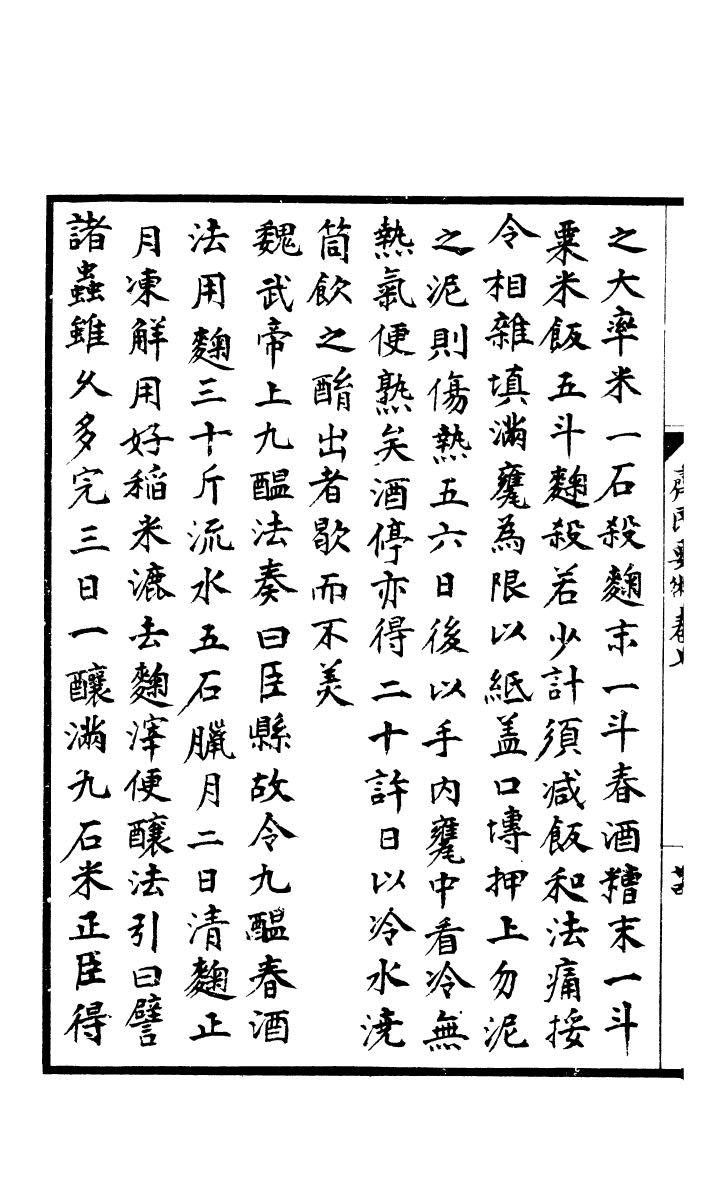 之大率米一石殺麴末一斗春酒糟末一斗
粟米飯五斗麴殺若少計須减飯和法痛挼
令相雜填滿甕為限以紙盖口塼押上勿泥
之泥則傷熱五六日後以手內甕中看冷無
熱氣便熟矣酒停亦得二十許日以冷水澆
筒飲之酳出者歇而不美
魏武帝上九醖法奏曰臣縣故令九醖春酒
法用麴三十斤流水五石臘月二日清麴正
月凍解用好稻米漉去麴滓便釀法引曰譬
諸蟲雖久多完三日一釀滿九石米正臣得
齊民要術卷七